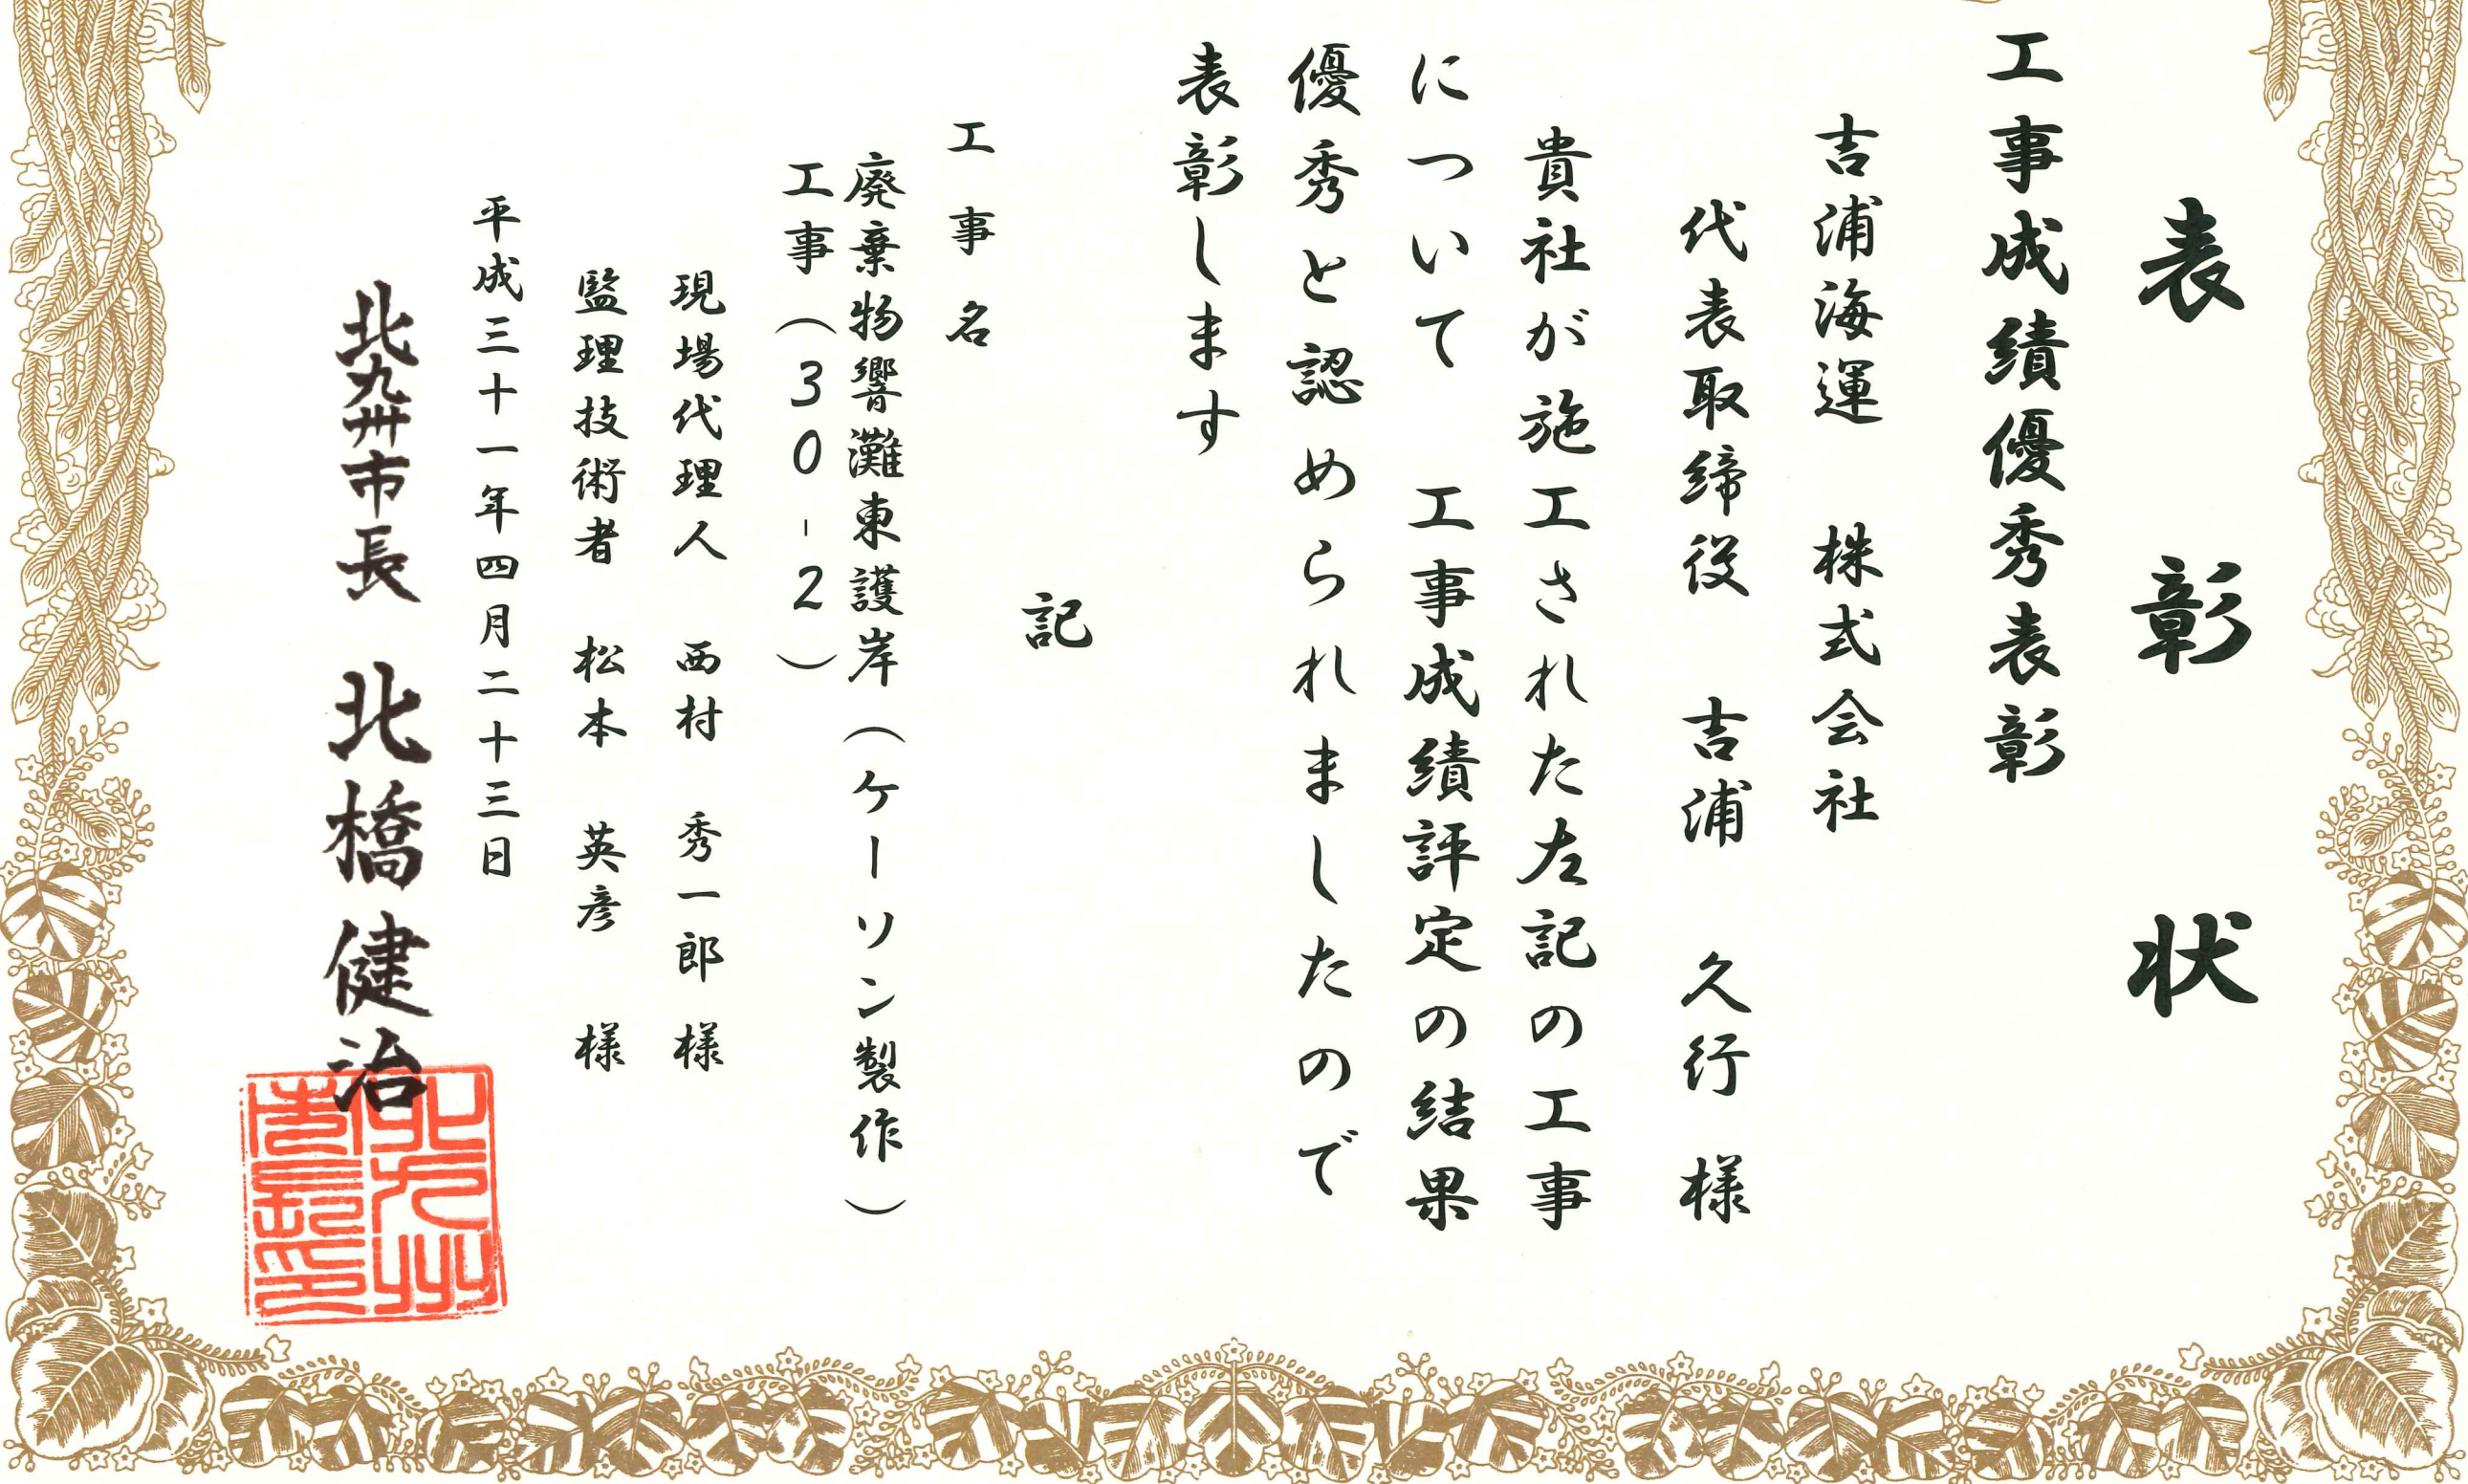 表彰状
工事成績優秀表彰
吉浦海運 株式会社
代表取締役 吉浦 久行 様
貴社が施工された左記の工事
について 工事成績評定の結果
優秀と認められましたので
表彰します
記
工事名
廃棄物響灘東護岸(ケーソン製作)
工事(30-2)
現場代理人 西村 秀一郎 様
監理技術者 松本 英彦 様
平成三十一年四月二十三日
北九州市長 北橋健治
北九州
市長印